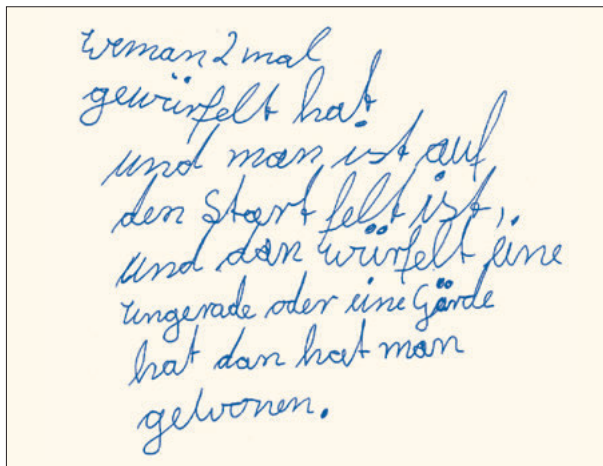 weman 2 mal
gewürfelt hat
und man ist auf
den Start felt ist,
und dan würfelt eine
ungerade oder eine Görde
hat dan hat man
gewonen.